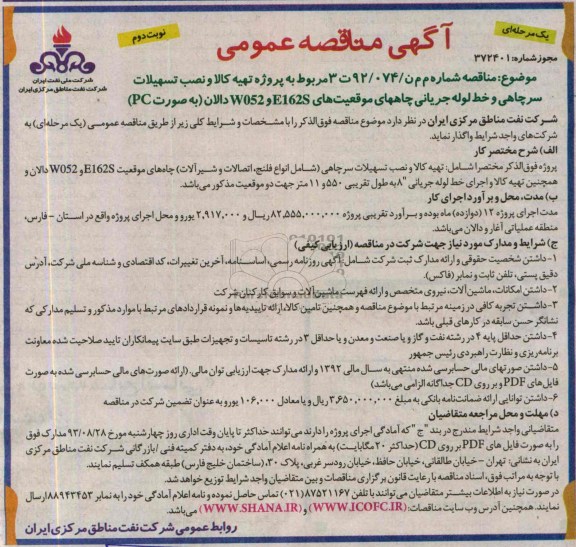 یک مرحله‌ای
آگهی مناقصه عمومی
نوبت دوم
مجوز شماره: ۳۷۲۴۰۱
شرکت ملی نفت ایران
شرکت نفت مناطق مرکزی ایران
موضوع: مناقصه شماره م م ن/۹۲/۰۷۴ت۳ مربوط به پروژه تهیه کالا و نصب تسهیلات
سرچاهی و خط لوله جریانی چاههای موقعیت‌های E162S و W052 دالان (به صورت PC)
شرکت نفت مناطق مرکزی ایران در نظر دارد موضوع مناقصه فوق‌الذکر را با مشخصات و شرایط کلی زیر از طریق مناقصه عمومی (یک مرحله‌ای) به
شرکت‌های واجد شرایط واگذار نماید.
الف) شرح مختصر کار
پروژه فوق‌الذکر مختصرا شامل: تهیه کالا و نصب تسهیلات سرچاهی (شامل انواع فلنج، اتصالات و شیرآلات) چاه‌های موقعیت E162S و W052 دالان و
همچنین تهیه کالا و اجرای خط لوله جریانی "۸ به طول تقریبی ۵۵۰ و ۱۱ متر جهت دو موقعیت مذکور می‌باشد.
ب) مدت، محل و برآورد اجرای کار
مدت اجرای پروژه ۱۲ (دوازده) ماه بوده و برآورد تقریبی پروژه ۸۲,۵۵۵,۰۰۰,۰۰۰ ریال و ۲,۹۱۷,۰۰۰ یورو و محل اجرای پروژه واقع در استان - فارس،
منطقه عملیاتی آغار و دالان می‌باشد.
ج) شرایط و مدارک مورد نیاز جهت شرکت در مناقصه (ارزیابی کیفی)
۱- داشتن شخصیت حقوقی و ارائه مدارک ثبت شرکت شامل آگهی روزنامه رسمی، اساسنامه، آخرین تغییرات، کد اقتصادی و شناسه ملی شرکت، آدرس
دقیق پستی، تلفن ثابت و نمابر (فاکس).
۲- داشتن امکانات، ماشین‌آلات، نیروی متخصص و ارائه فهرست ماشین‌آلات و سوابق کارکنان شرکت
۳- داشتن تجربه کافی در زمینه مرتبط با موضوع مناقصه و همچنین تامین کالا، ارائه تاییدیه‌ها و نمونه قراردادهای مرتبط با موارد مذکور و تسلیم مدارکی که
نشانگر حسن سابقه در کارهای قبلی باشد.
۴- داشتن حداقل پایه ۴ در رشته نفت و گاز و یا صنعت و معدن و یا حداقل ۳ در رشته تاسیسات و تجهیزات طبق سایت پیمانکاران تایید صلاحیت شده معاونت
برنامه‌ریزی و نظارت راهبردی رئیس جمهور
۵- داشتن صورتهای مالی حسابرسی شده منتهی به سال مالی ۱۳۹۲ و ارائه مدارک جهت ارزیابی توان مالی. (ارائه صورت‌های مالی حسابرسی شده به صورت
فایل‌های PDF و بر روی CD جداگانه الزامی می‌باشد)
۶- داشتن توانایی ارائه ضمانت‌نامه بانکی به مبلغ ۳,۶۵۰,۰۰۰,۰۰۰ ریال و یا معادل ۱۰۶,۰۰۰ یورو به عنوان تضمین شرکت در مناقصه
د) مهلت و محل مراجعه متقاضیان
متقاضیانی واجد شرایط مندرج در بند "ج" که آمادگی اجرای پروژه را دارند می‌توانند حداکثر تا پایان وقت اداری روز چهارشنبه مورخ ۹۳/۰۸/۲۸ مدارک فوق
را به صورت فایل های PDF بر روی CD (حداکثر ۲۰ مگابایت) به همراه نامه اعلام آمادگی خود، به دفتر کمیته فنی / بازرگانی شرکت نفت مناطق مرکزی
ایران به نشانی: تهران - خیابان طالقانی، خیابان حافظ، خیابان رودسر غربی، پلاک ۳۰، (ساختمان خلیج فارس) طبقه همکف تسلیم نمایند.
با توجه به مراتب فوق، اسناد مناقصه با رعایت قانون برگزاری مناقصات و بین متقاضیان واجد شرایط توزیع خواهد شد.
در صورت نیاز به اطلاعات بیشتر متقاضیان می‌توانند با تلفن ۸۷۵۲۱۱۶۷ (۰۲۱) تماس حاصل نموده و نامه اعلام آمادگی خود را به نمابر ۸۸۹۴۳۴۵۳ ارسال
نمایند. همچنین آدرس وب سایت مناقصات: (WWW.ICOFC.IR) و (WWW.SHANA.IR) می‌باشد.
روابط عمومی شرکت نفت مناطق مرکزی ایران